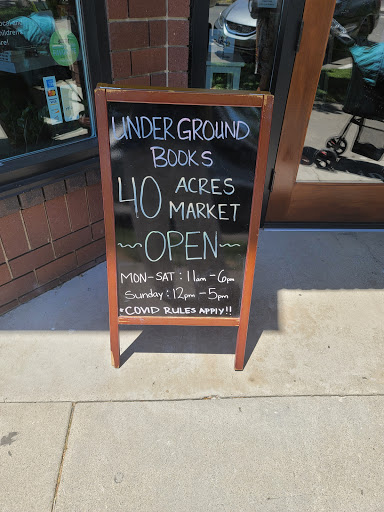 UNDERGROUND
BOOKS
40 ACRES
MARKET
~OPEN~
MON-SAT: 11am-6pm
Sunday: 12pm-5pm
*COVID RULES APPLY!!